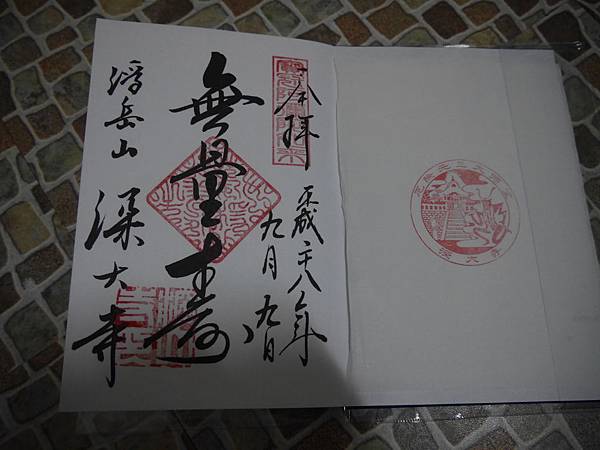 奉拝
平成二十八年
九月九日
無量壽
浮岳山
深大寺
深大寺